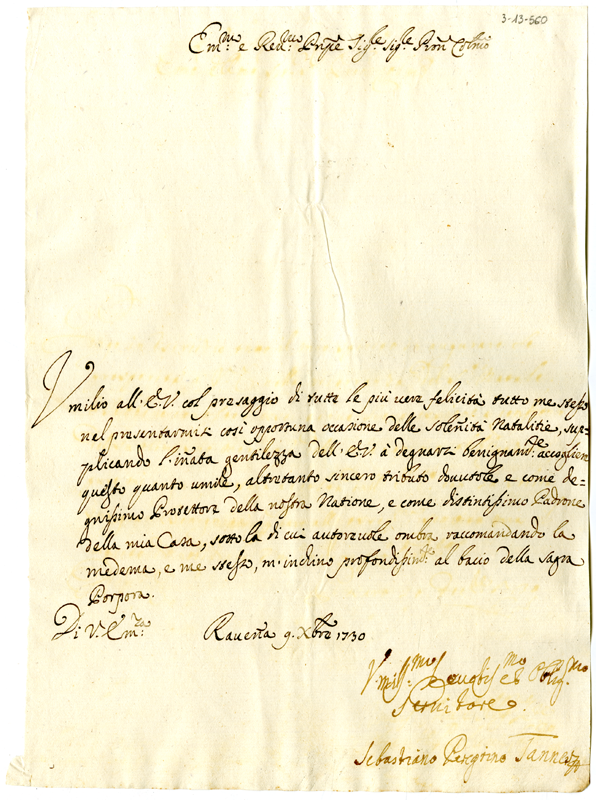 3-13-560
Em.mo e Red.mo Pnpe Sig.re Sig.re Prn Colmo
Vmilio all'E.V. col presaggio di tutte le più vere felicità tutto me stesso
nel presentarmisi così opportuna occasione delle soleñità Natalitie, sup=
plicando l'iñata gentilezza dell'E.V. à degnarsi benignam.te accogliere
questo quanto umile, altretanto sincero tributo douutole e come de=
gnissimo Protettore della nostra Natione, e come distintissimo Padrone
della mia Casa, sotto la di cui autoreuole ombra raccomandando la
medema, e me stesso, m'inchino profondissim.te al bacio della sagra
Porpora.
Di V. Em.za Rauenna 9. Xbre 1730
Vmiliss.mo Deuotis.mo ed Oblig.mo
Seruitore
Sebastiano Peregrino